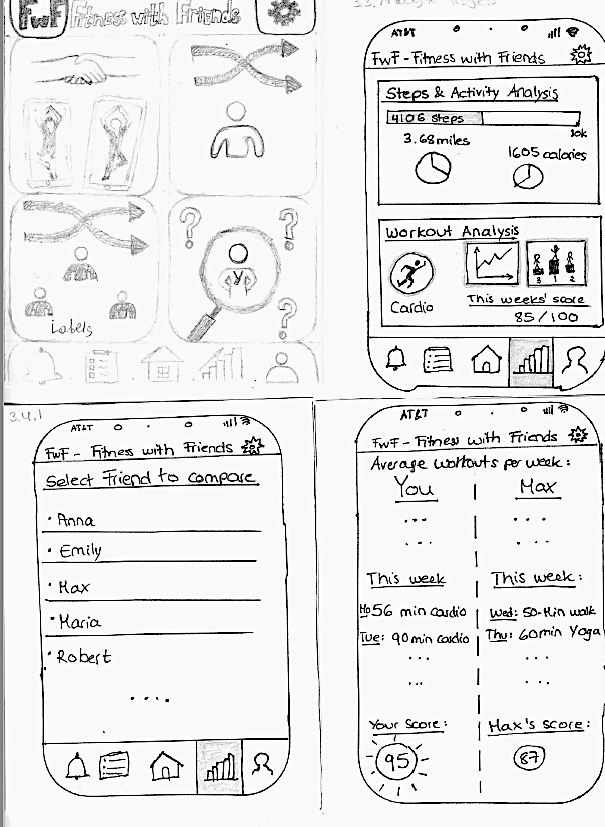 FwF Fitness with Friends
Labels
AT&T
FwF - Fitness with Friends
Steps & Activity Analysis
4106 steps
10k
3.68 miles
1605 calories
Workout Analysis
3 1 2
Cardio
This weeks' score
85/100
3.4.1
AT&T
FwF - Fitness with Friends
Select Friend to compare
• Anna
• Emily
• Max
• Maria
• Robert
....
AT&T
FwF - Fitness with Friends
Average workouts per week:
You Max
... ...
... ...
This week This week:
Mo 56 min cardio Wed: 50-Min walk
Tue: 90 min cardio Thu: 60min Yoga
... ...
... ...
Your Score: Max's score:
95 87